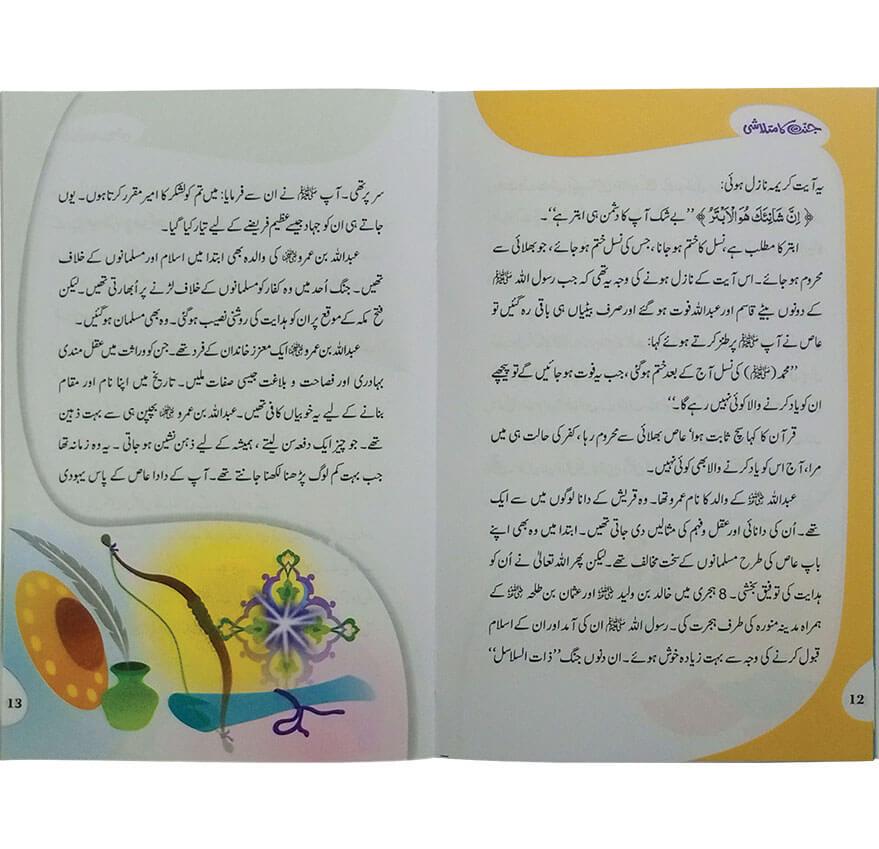 جنت کا متلاشی
یہ آیت کریمہ نازل ہوئی:
﴿ اِنَّ شَانِئَكَ هُوَ الْاَبْتَرُ ﴾ ’’بے شک آپ کا دشمن ہی ابتر ہے‘‘۔
ابتر کا مطلب ہے، نسل کا ختم ہو جانا، جس کی نسل ختم ہو جائے، جو بھلائی سے
محروم ہو جائے۔ اس آیت کے نازل ہونے کی وجہ یہ تھی کہ جب رسول اللہ ﷺ
کے دونوں بیٹے قاسم اور عبداللہ فوت ہو گئے اور صرف بیٹیاں ہی باقی رہ گئیں تو
عاص نے آپ ﷺ پر طنز کرتے ہوئے کہا:
’’محمد (ﷺ) کی نسل آج کے بعد ختم ہو گئی، جب یہ فوت ہو جائیں گے تو پیچھے
ان کو یاد کرنے والا کوئی نہیں رہے گا۔‘‘
قرآن کا کہا سچ ثابت ہوا‘ عاص بھلائی سے محروم رہا، کفر کی حالت ہی میں
مرا، آج اس کو یاد کرنے والا بھی کوئی نہیں۔
عبداللہ رضی اللہ عنہ کے والد کا نام عمرو تھا۔ وہ قریش کے دانا لوگوں میں سے ایک
تھے۔ اُن کی دانائی اور عقل و فہم کی مثالیں دی جاتی تھیں۔ ابتدا میں وہ بھی اپنے
باپ عاص کی طرح مسلمانوں کے سخت مخالف تھے۔ لیکن پھر اللہ تعالیٰ نے اُن کو
ہدایت کی توفیق بخشی۔ 8 ہجری میں خالد بن ولید رضی اللہ عنہ اور عثمان بن طلحہ رضی اللہ عنہ کے
ہمراہ مدینہ منورہ کی طرف ہجرت کی۔ رسول اللہ ﷺ ان کی آمد اور ان کے اسلام
قبول کرنے کی وجہ سے بہت زیادہ خوش ہوئے۔ ان دنوں جنگ ’’ذات السلاسل‘‘
12
سر پر تھی۔ آپ ﷺ نے ان سے فرمایا: میں تم کو لشکر کا امیر مقرر کرتا ہوں۔ یوں
جاتے ہی ان کو جہاد جیسے عظیم فریضے کے لیے تیار کیا گیا۔
عبداللہ بن عمرو رضی اللہ عنہ کی والدہ بھی ابتدا میں اسلام اور مسلمانوں کے خلاف
تھیں۔ جنگ اُحد میں وہ کفار کو مسلمانوں کے خلاف لڑنے پر اُبھارتی تھیں۔ لیکن
فتح مکہ کے موقع پر ان کو ہدایت کی روشنی نصیب ہو گئی۔ وہ بھی مسلمان ہو گئیں۔
عبداللہ بن عمرو رضی اللہ عنہ ایک معزز خاندان کے فرد تھے۔ جن کو وراثت میں عقل مندی
بہادری اور فصاحت و بلاغت جیسی صفات ملیں۔ تاریخ میں اپنا نام اور مقام
بنانے کے لیے یہ خوبیاں کافی تھیں۔ عبداللہ بن عمرو رضی اللہ عنہ بچپن ہی سے بہت ذہین
تھے۔ جو چیز ایک دفعہ سن لیتے، ہمیشہ کے لیے ذہن نشین ہو جاتی۔ یہ وہ زمانہ تھا
جب بہت کم لوگ پڑھنا لکھنا جانتے تھے۔ آپ کے دادا عاص کے پاس یہودی
13